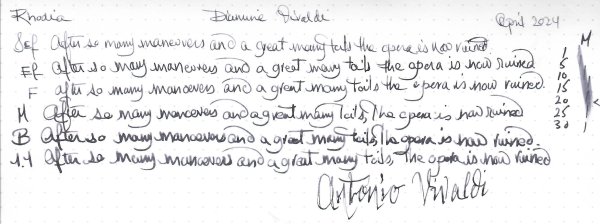 Rhodia Diamine Vivaldi April 2024 M
SEF After so many maneuvers and a great many tails the opera is now ruined. 1
EF After so many maneuvers and a great many tails the opera is now ruined 5
10
F After so many maneuvers and a great many tails the opera is now ruined. 15
20
M After so many maneuvers and a great many tails, The opera is now ruined 25
B After so many maneuvers and a great many tails, The opera is now ruined. 30
1.1 After so many maneuvers and a great many tails, The opera is now ruined
Antonio Vivaldi